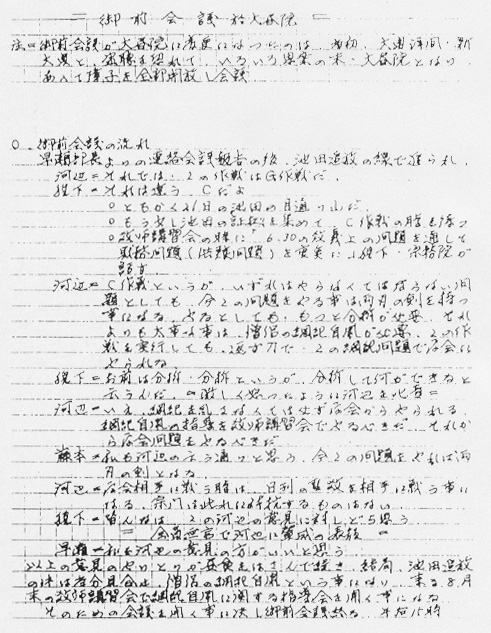 = 御前会議於大奥院 =
注=御前会議が大奥院に変更になったのは 当初、大書院・新
大奥と、盗聴を恐れて、いろいろ思案の末、大奥院となり、
あへて障子を全部開放し会議
○ 御前会議の流れ
早瀬部長よりの連絡会議報告の後、池田追放の線で進られ、
河辺=それでは、この作戦はG作戦だ、
猊下=それは違う Cだよ
○ともかく 日の池田の目通り
○もう少し池田の証拠を集めて C作戦の時を待つ
○教師講習会の時に 6.30の教義上の問題を通して
問題(法務問題)を 猊下・宗務院が
話す
河辺=C作戦というが、いずれはやらなくてはならない問
題としても、今この問題をやる事は両刃の剣を持つ
事になる、やるとしても、もっと分析が必要、それ
よりも大事な事は、僧侶の綱紀自粛が必要、この作
戦を実行しても、返す刀で、この綱紀問題で学会に
やられる
猊下=お前は分析・分析というが、分析して何ができると
云うんだ、=激しく怒ったように河辺を叱責=
河辺=いえ、綱紀を正さなくては必ず学会からやられる、
綱紀自粛の指導を教師講習会でやるべきだ それか
ら学会問題をやるべきだ
藤本=私も河辺の云う通りと思う、今この問題をやれば両
刃の剣となる
河辺=学会相手に戦う時は、日刊の聖教を相手に戦う事に
なる、宗門は此れに対抗するものはない
猊下=皆んなは、この河辺の意見に対しどう思う
= 全員無言で河辺に賛成の表敬 =
早瀬=私も河辺の意見の方がいいと思う
以上の意見のやりとりが昼食をはさんで続き、結局、池田追放
の件は当分見合せ 僧侶の綱紀自粛という事になり、来る8月
末の教師講習会で綱紀自粛に関する指導会を開く事になる
そのための会議を開く事に決し御前会議終る 午后15時